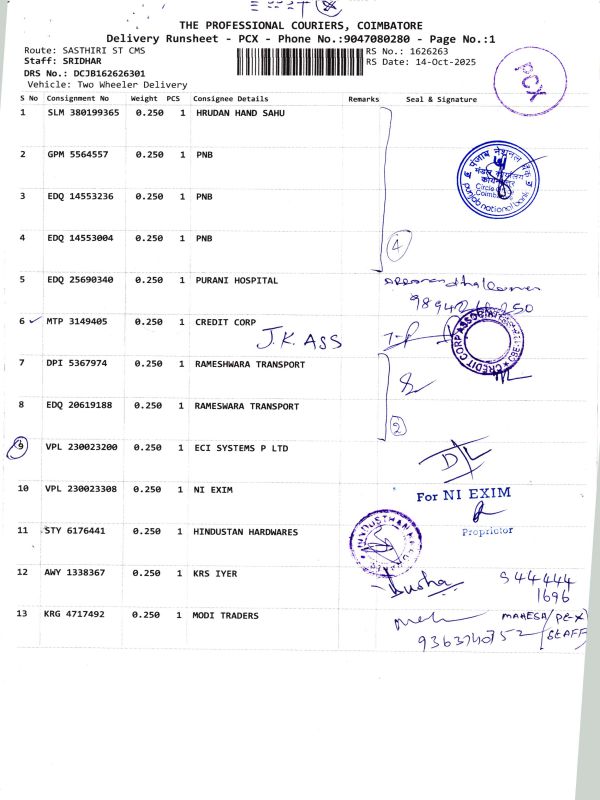 THE PROFESSIONAL COURIERS, COIMBATORE
Delivery Runsheet - PCX - Phone No.:9047080280 - Page No.:1
Route: SASTHIRI ST CMS
RS No.: 1626263
Staff: SRIDHAR
RS Date: 14-Oct-2025
DRS No.: DCJB162626301
Vehicle: Two Wheeler Delivery
PCX
S No Consignment No Weight PCS Consignee Details Remarks Seal & Signature
1 SLM 380199365 0.250 1 HRUDAN HAND SAHU
2 GPM 5564557 0.250 1 PNB
पंजाब नैशनल बैंक
मंडल कार्यालय
punjab national bank
3 EDQ 14553236 0.250 1 PNB
4 EDQ 14553004 0.250 1 PNB
4
5 EDQ 25690340 0.250 1 PURANI HOSPITAL
6 MTP 3149405 0.250 1 CREDIT CORP
J.K. ASS
CREDIT CORP ASSOCIATES
7 DPI 5367974 0.250 1 RAMESHWARA TRANSPORT
8 EDQ 20619188 0.250 1 RAMESWARA TRANSPORT
2
9 VPL 230023200 0.250 1 ECI SYSTEMS P LTD
D/L
10 VPL 230023308 0.250 1 NI EXIM
For NI EXIM
Proprietor
11 STY 6176441 0.250 1 HINDUSTAN HARDWARES
12 AWY 1338367 0.250 1 KRS IYER
Husha
944444
1696
13 KRG 4717492 0.250 1 MODI TRADERS
MAHESA/PE-X
9363740752 STAFF